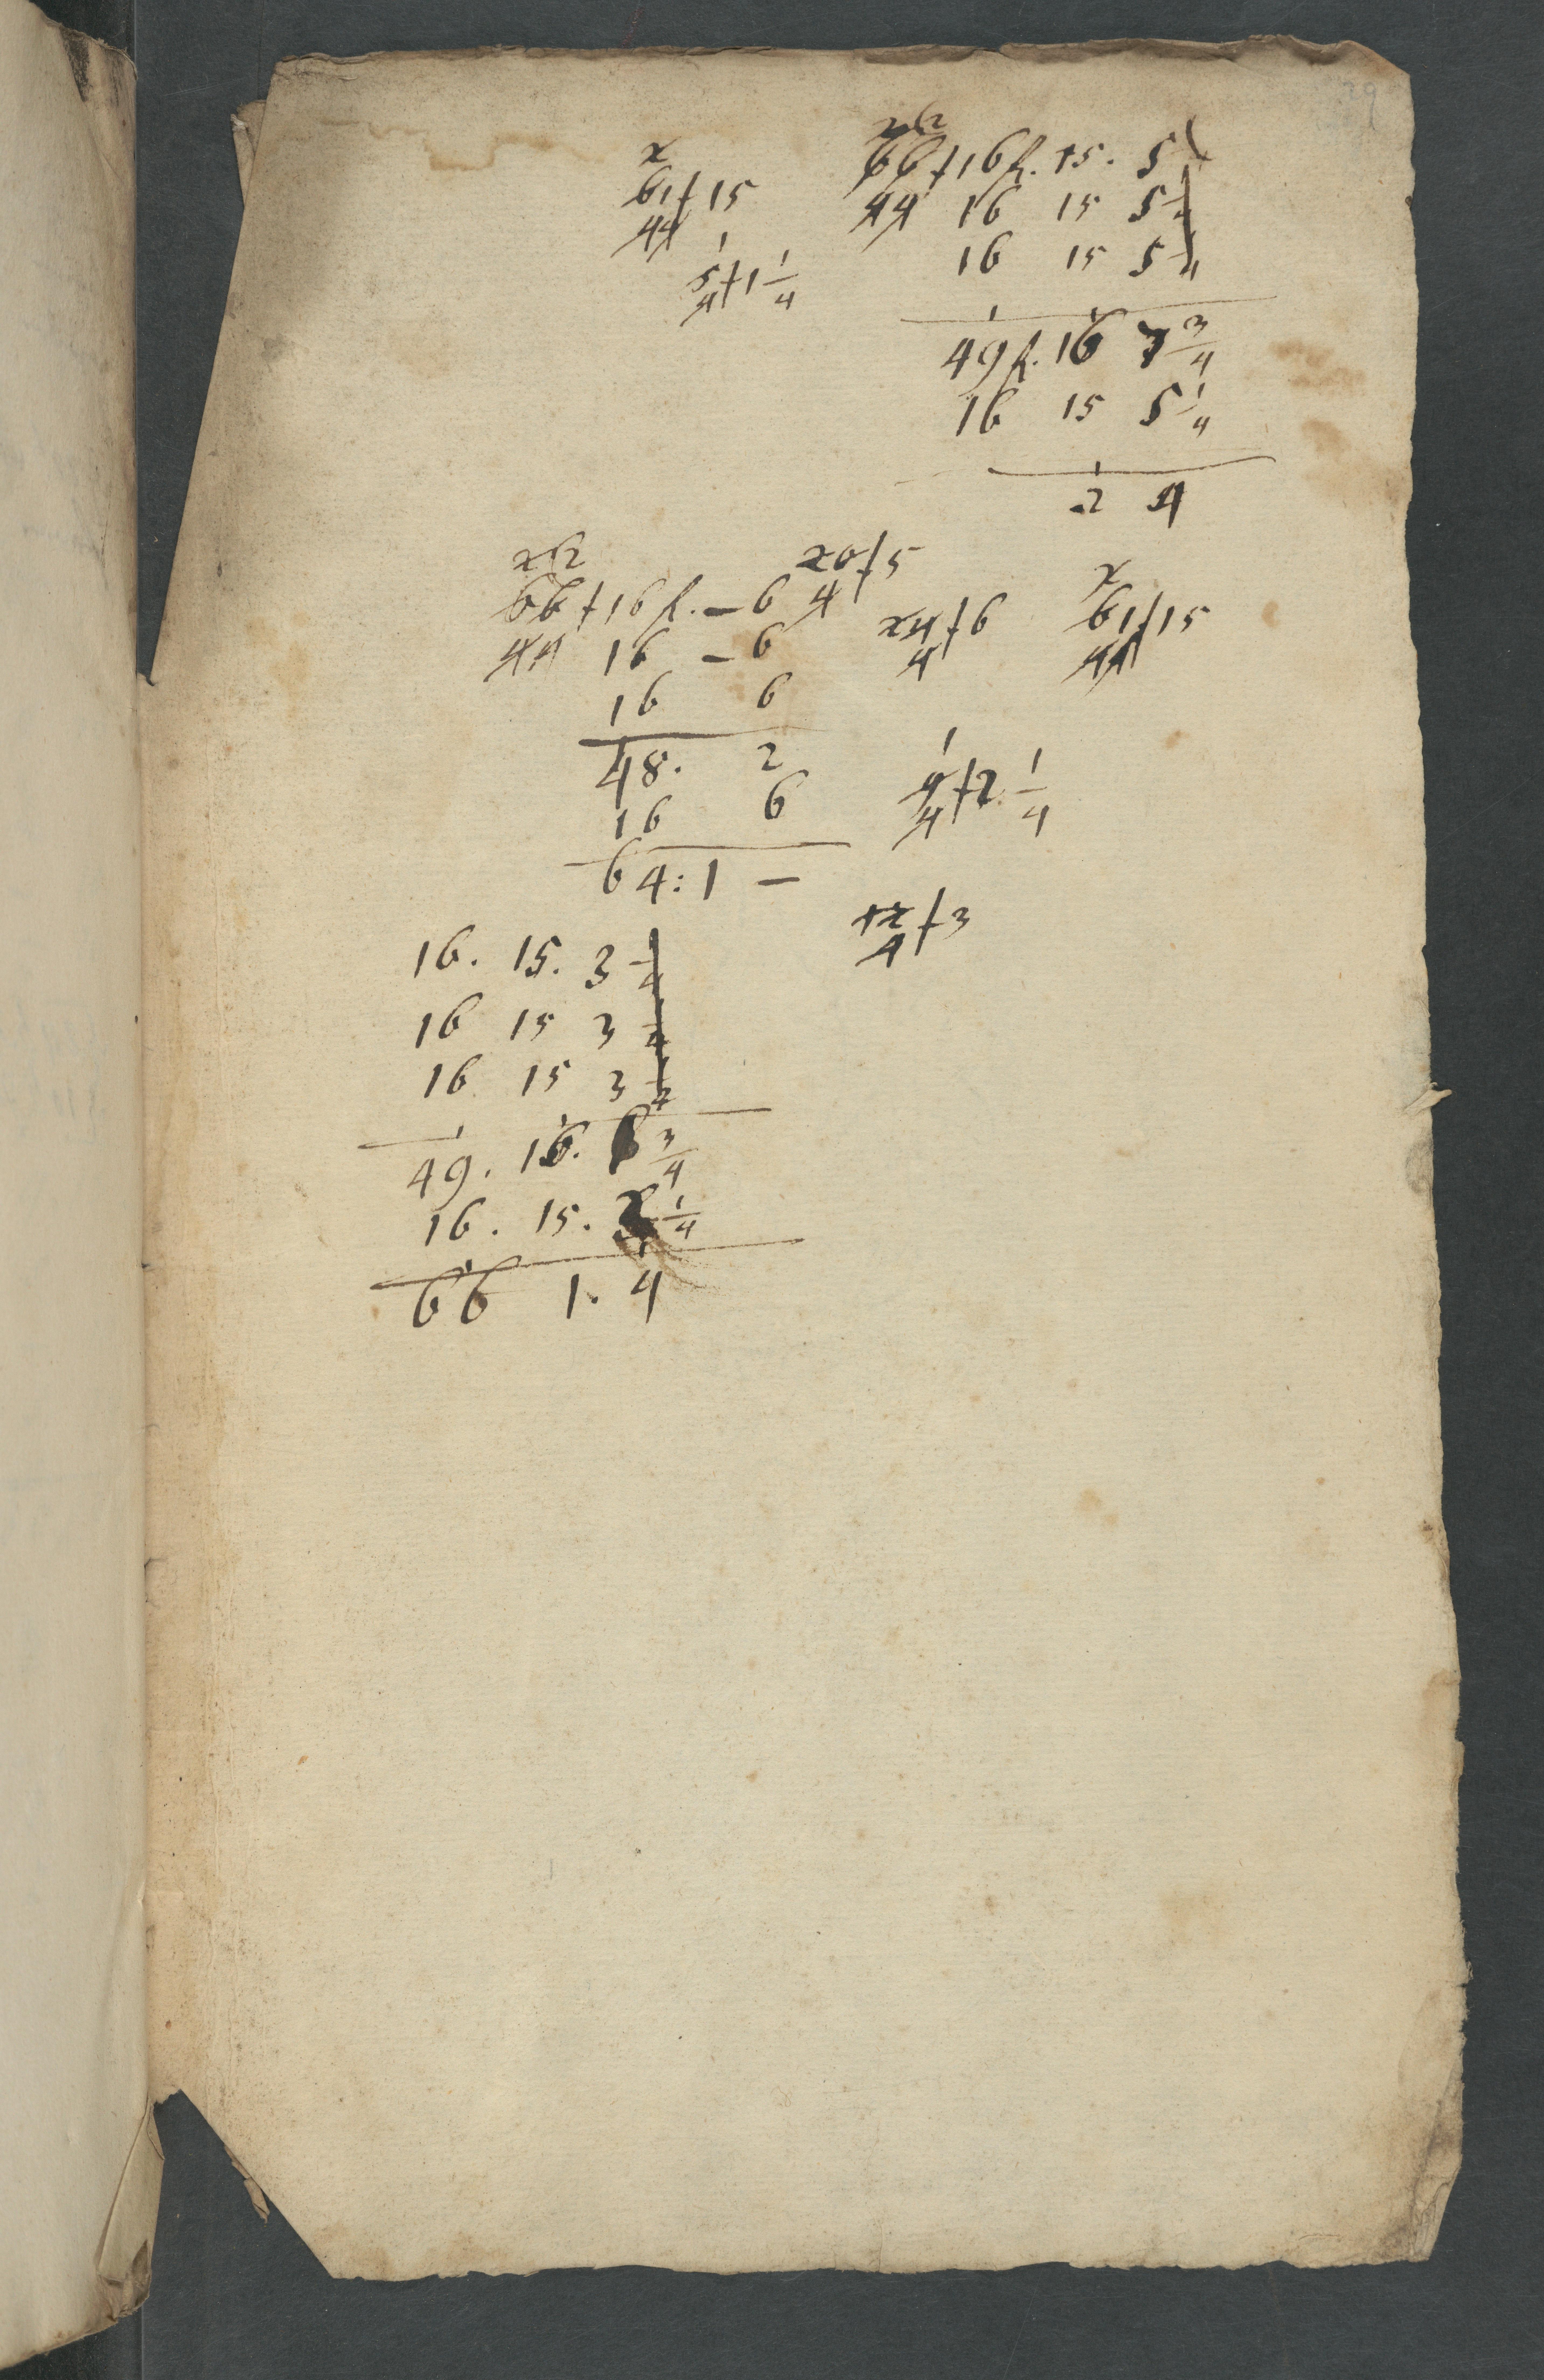 29
x
61 ƒ 15
44
1
5 ƒ 1 1/4
4
2 2
66 ƒ 16 f. 15. 5
44 16 15 5 1/4
16 15 5 1/4
49 f. 16 7 3/4
16 15 5 1/4
2 4
x 2
66 ƒ 16 f. – 6
44 16 – 6
16 6
48. 2
16 6
64: 1 –
20 ƒ 5
4
24 ƒ 6
4
x
61 ƒ 15
44
1
9 ƒ 2 1/4
4
12 ƒ 3
4
16. 15. 3 1/4
16 15 3 1/4
16 15 3 1/4
49. 16. 3/4
16. 15. 1/4
66 1. 4